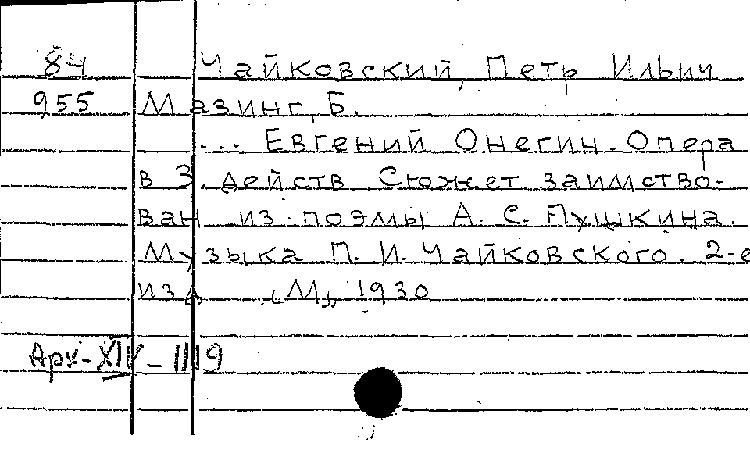 84 Чайковский, Петр Ильич
955 Мазинг, Б.
... Евгений Онегин. Опера
в 3 действ. Сюжет заимство-
ван из поэмы А. С. Пушкина.
Музыка П. И. Чайковского. 2-е
изд „М„ 1930
Арх-XIV-1119